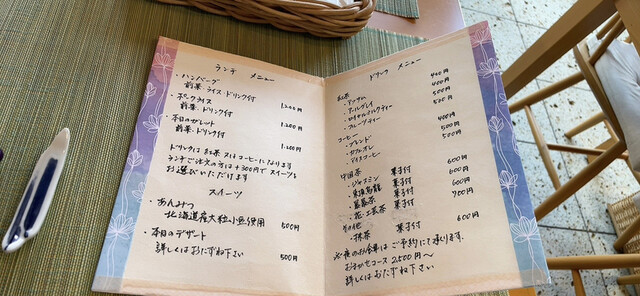 ランチ メニュー
・ハンバーグ
前菜・ライス・ドリンク付 1,200円
・ポークライス
前菜・ドリンク付 1,200円
・本日のガレット
前菜・ドリンク付 1,200円
ドリンクは紅茶又はコーヒーになります
ランチご注文の方は+300円でスイーツを
お選びいただけます
スイーツ
・あんみつ
北海道産大粒小豆使用 500円
・本日のデザート 500円
詳しくはおたずね下さい
ドリンク メニュー
紅茶
・アッサム 400円
・アールグレイ 400円
・ロイヤルミルクティー 500円
・フルーツティー 500円
コーヒー
・ブレンド 400円
・カフェオレ 500円
・アイスコーヒー 500円
中国茶
・ジャスミン 菓子付 600円
・凍頂烏龍 菓子付 600円
菓子付 600円
菓子付 700円
その他
・抹茶 菓子付 600円
※夜のお食事はご予約にて承ります。
おまかせコース 2,500円〜
詳しくはおたずね下さい